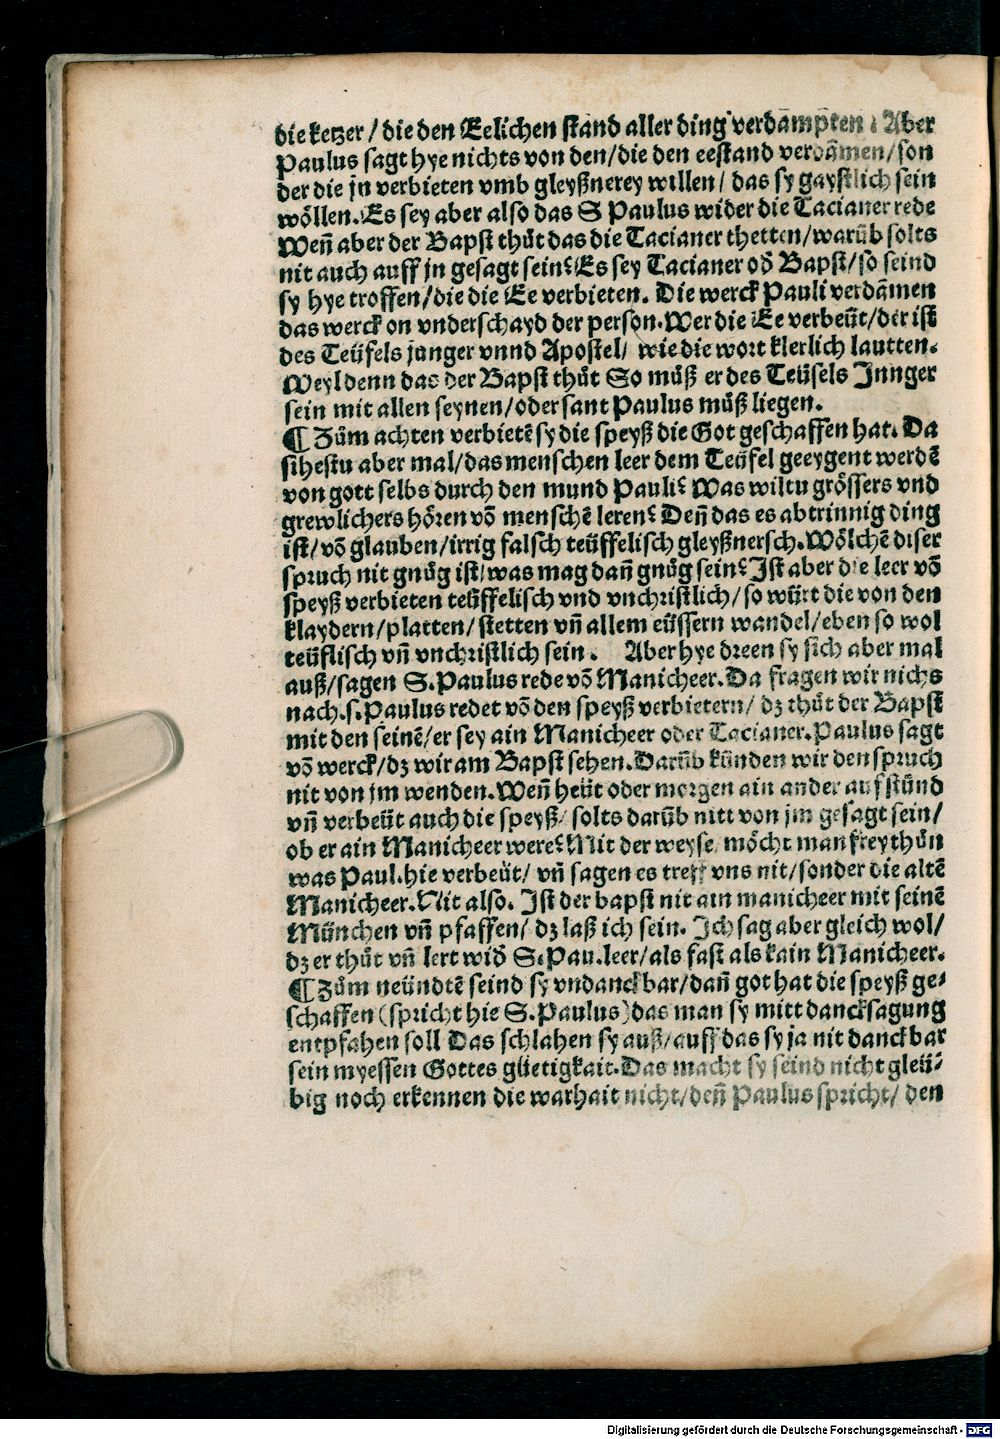 die ketzer / die den Eelichen stand aller ding verdāmpten : Aber
Paulus sagt hye nichts von den/die den eestand verdāmen/son
der die jn verbieten vmb gleyßnerey willen/ das sy gaystlich sein
wöllen. Es sey aber also das S Paulus wider die Tacianer rede
Weñ aber der Bapst thůt das die Tacianer thetten/warūb solts
nit auch auff jn gesagt sein? Es sey Tacianer od̄ Bapst/so seind
sy hye troffen/die die Ee verbieten. Die werck Pauli verdāmen
das werck on vnderschayd der person. Wer die Ee verbeüt/der ist
des Teüfels junger vnnd Apostel/ wie die wort klerlich lautten.
Weyl denn das der Bapst thůt So můß er des Teüfels Jnnger
sein mit allen seynen/oder sant Paulus můß liegen.
¶ Zům achten verbietē sy die speyß die Got geschaffen hat. Da
sihestu aber mal/das menschen leer dem Teüfel geeygent werdē
von gott selbs durch den mund Pauli? Was wiltu grössers vnd
grewlichers hören vō menschē leren? Deñ das es abtrinnig ding
ist/vō glauben/irrig falsch teüffelisch gleyßnersch. Wölchē diser
spruch nit gnůg ist/was mag dañ gnůg sein? Ist aber die leer vō
speyß verbieten teüffelisch vnd vnchristlich/so würt die von den
klaydern/platten/stetten vñ allem eüssern wandel/eben so wol
teüflisch vñ vnchristlich sein. Aber hye dreen sy sich aber mal
auß/sagen S.Paulus rede vō Manicheer. Da fragen wir nichs
nach.s.Paulus redet vō den speyß verbietern/ dz thůt der Bapst
mit den seinē/er sey ain Manicheer oder Tacianer. Paulus sagt
vō werck/dz wir am Bapst sehen. Darūb künden wir den spruch
nit von jm wenden. Weñ heüt oder morgen ain ander aufstünd
vñ verbeüt auch die speyß/ solts darūb nitt von jm gesagt sein/
ob er ain Manicheer were? Mit der weyse möcht man frey thůn
was Paul.hie verbeüt/ vñ sagen es treff vns nit/sonder die altē
Manicheer. Nit also. Ist der bapst nit ain manicheer mit seinē
München vñ pfaffen/ dz laß ich sein. Ich sag aber gleich wol/
dz er thůt vñ lert wid̄ S.Pau.leer/als fast als kain Manicheer.
¶ Zům neündtē seind sy vndanckbar/dañ got hat die speyß ge-
schaffen (spricht hie S.Paulus) das man sy mitt dancksagung
entpfahen soll Das schlahen sy auß/auff das sy ja nit danckbar
sein myessen Gottes gůetigkait. Das macht sy seind nicht gleü-
big noch erkennen die warhait nicht/deñ Paulus spricht/ den
Digitalisierung gefördert durch die Deutsche Forschungsgemeinschaft - DFG